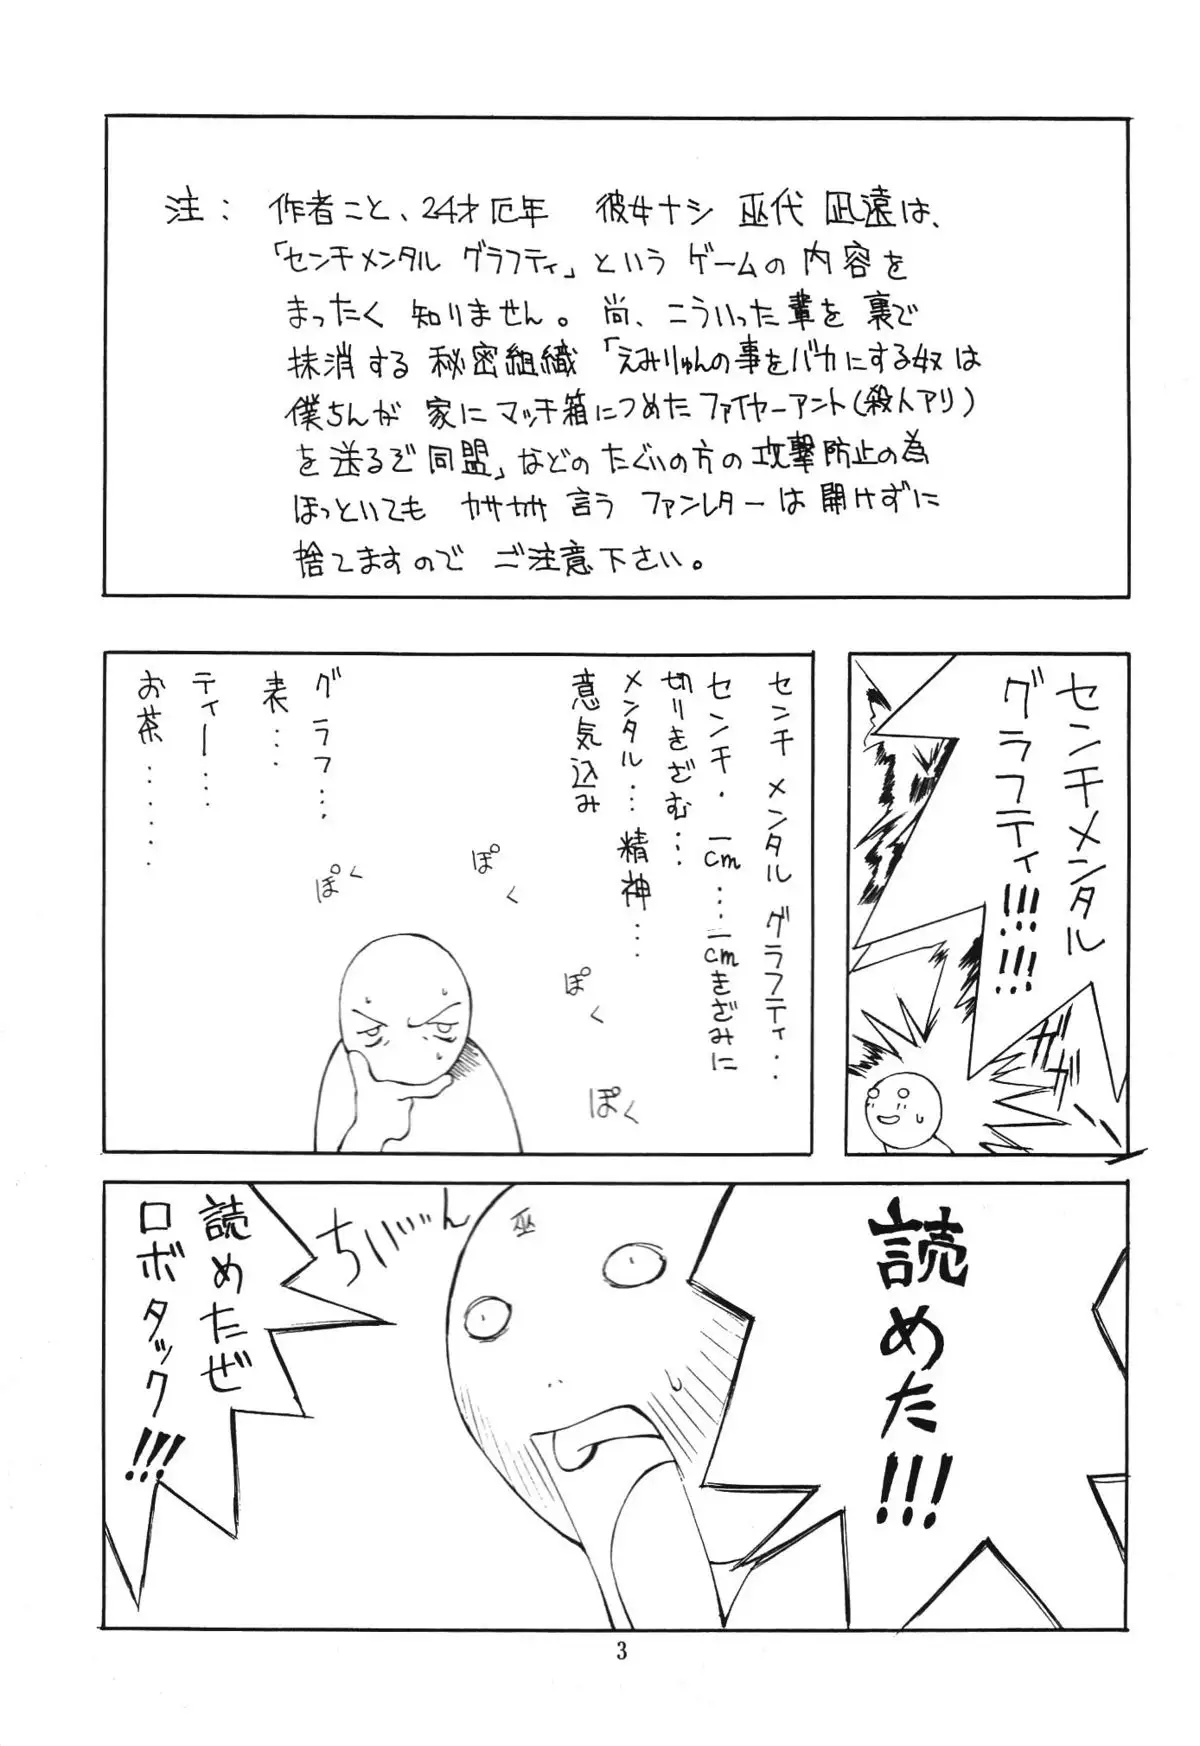 注： 作者こと、24才厄年 彼女ナシ 巫代 凪遠は、
「センチメンタル グラフティ」という ゲームの内容を
まったく 知りません。尚、こういった輩を 裏で
抹消する 秘密組織「えみりゅんの事をバカにする奴は
僕ちんが 家に マッチ箱につめた ファイヤーアント(殺人アリ)
を 送るぞ 同盟」などの たぐいの方の 攻撃防止の為
ほっといても カサカサ 言う ファンレターは 開けずに
捨てますので ご注意下さい。
センチメンタル
グラフティ!!!!!
ガガーン
センチ メンタル グラフティ…
センチ・ 一cm…一cmきざみに
切りきざむ…
メンタル… 精神…
意気込み
グラフ…
表…
ティー…
お茶……
ぽく
ぽく
ぽく
ぽく
読めた!!!
巫
ちぃぃん
読めたぜ
ロボタック!!!
3